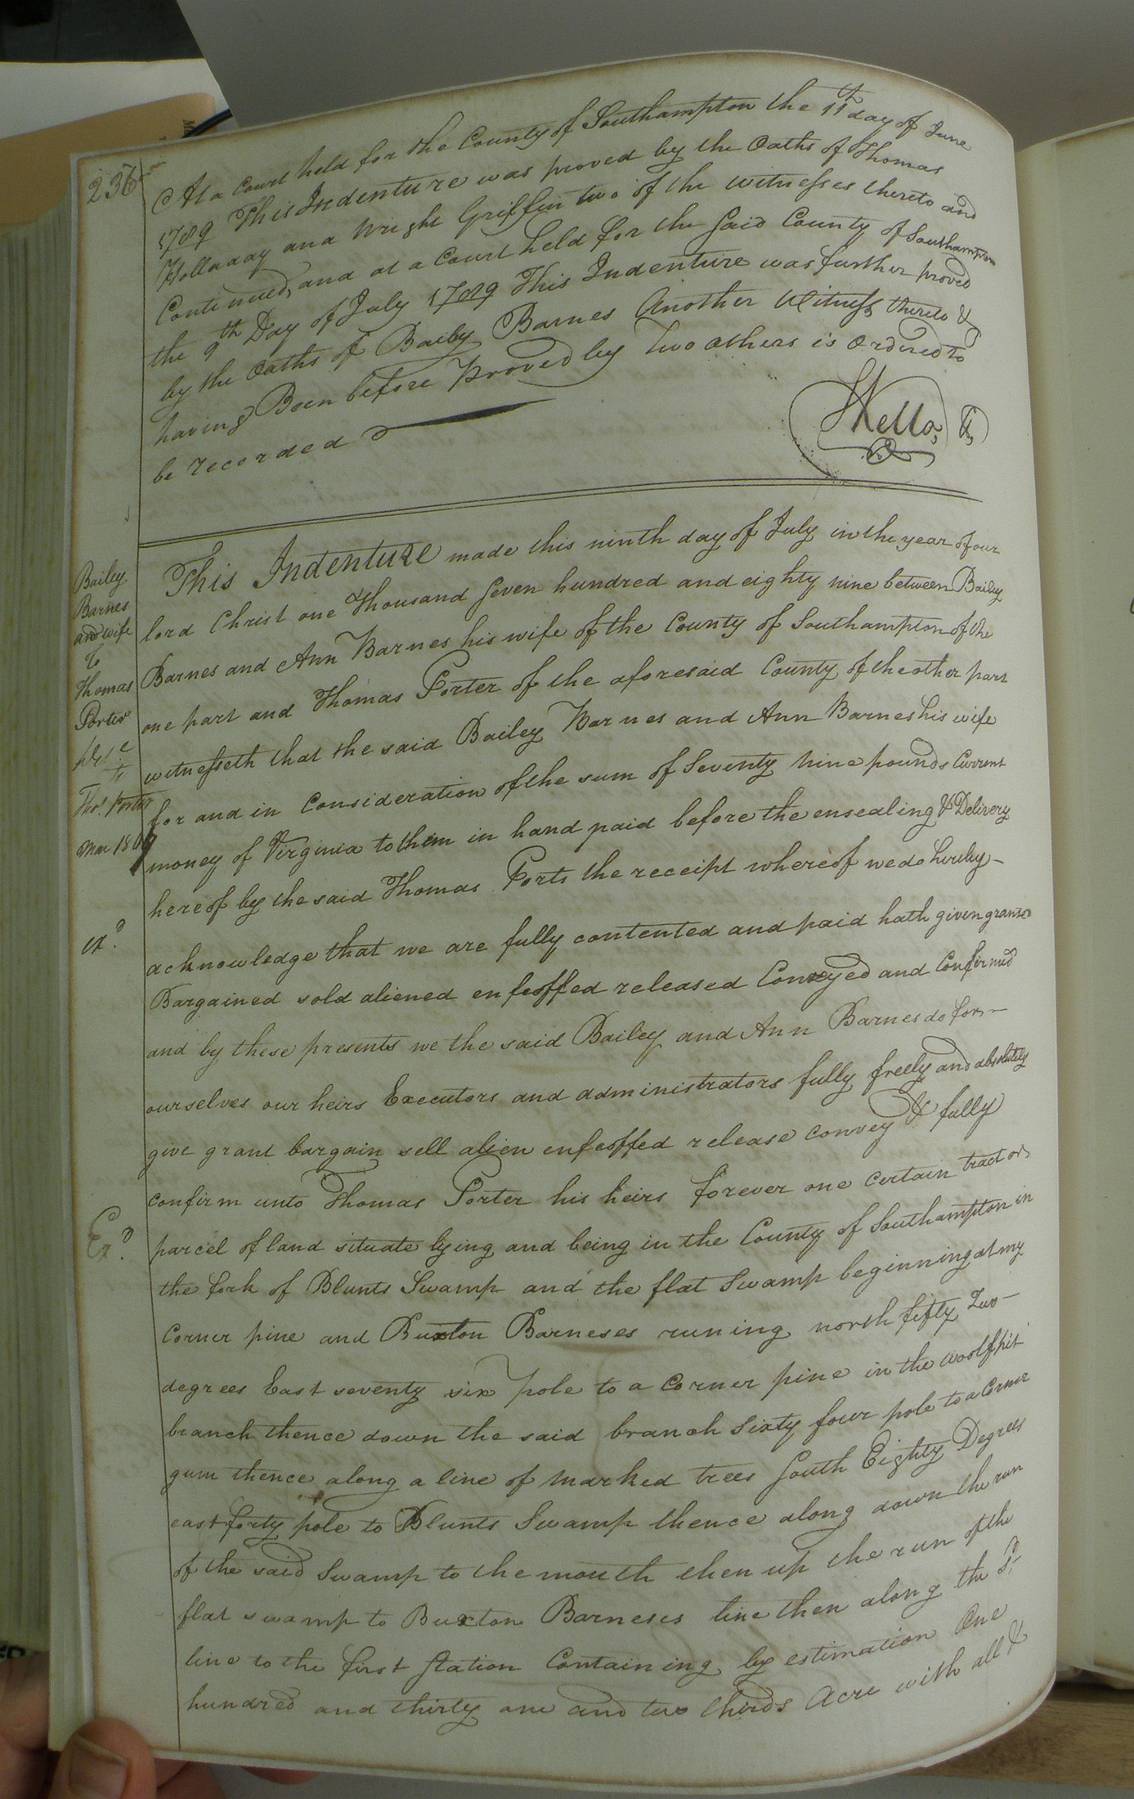 236
At a Court held for the County of Southampton the 11th day of June
1789 This Indenture was proved by the Oaths of Thomas
Holladay and Wright Griffin two of the witnesses thereto and
Continued, and at a Court held for the said County of Southampton
the 9th Day of July 1789 This Indenture was further proved
by the Oaths of Baily Barnes Another Witness thereto &
having Been before Proved by Two others is Ordered to
be recorded
Kello
Bailey
Barnes
and wife
To
Thomas
Porter
Thos. Porter
Mar 180
exd.
Exd.
This Indenture made this ninth day of July in the year of our
lord Christ one Thousand Seven hundred and eighty nine between Baily
Barnes and Ann Barnes his wife of the County of Southampton of the
one part and Thomas Porter of the aforesaid County of the other part
witnesseth that the said Bailey Barnes and Ann Barnes his wife
for and in Consideration of the sum of Seventy Nine pounds Current
money of Virginia to them in hand paid before the ensealing & Delivery
hereof by the said Thomas Ports the receipt whereof we do hereby-
acknowledge that we are fully contented and paid hath given granted
Bargained sold aliened enfeoffed released Conveyed and Confirmed
and by these presents we the said Bailey and Ann Barnes do for-
ourselves our heirs Executors and administrators fully freely and absolutely
give grant bargain sell alien enfeoffed release convey & fully
confirm unto Thomas Porter his heirs forever one certain tract or
parcel of land situate lying and being in the County of Southampton in
the fork of Blunts Swamp and the flat Swamp beginning at my
Corner pine and Buxton Barneses runing north fifty Two-
degrees East seventy six pole to a Corner pine in the woolfpit
branch thence down the said branch Sixty four pole to a Corner
gum thence along a line of marked trees South Eighty Degrees
east forty pole to Blunts Swamp thence along down the run
of the said Swamp to the mouth then up the run of the
flat swamp to Buxton Barneses line then along the sd.
line to the first station Containing by estimation One
hundred and thirty one and two thirds Acre with all &